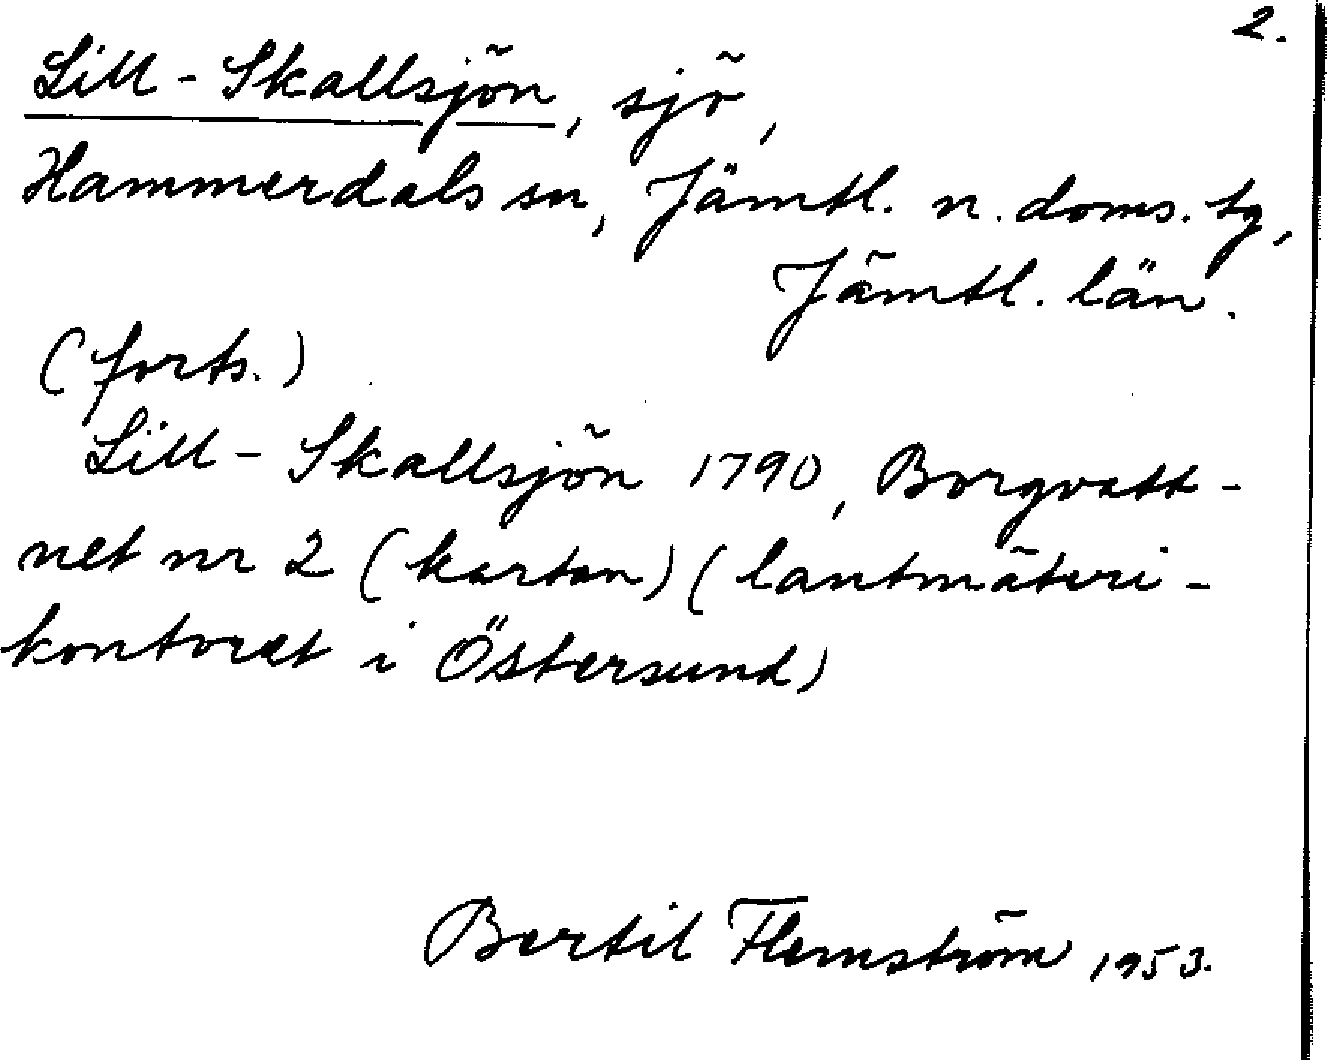 2.
Lill-Skallsjön, sjö,
Hammerdals sn, Jämtl. n. doms. tg,
Jämtl. län.
(forts.)
Lill-Skallsjön 1790, Borgvatt-
net nr 2 (kartan) (lantmäteri-
kontoret i Östersund)
Bertil Flemström 1953.